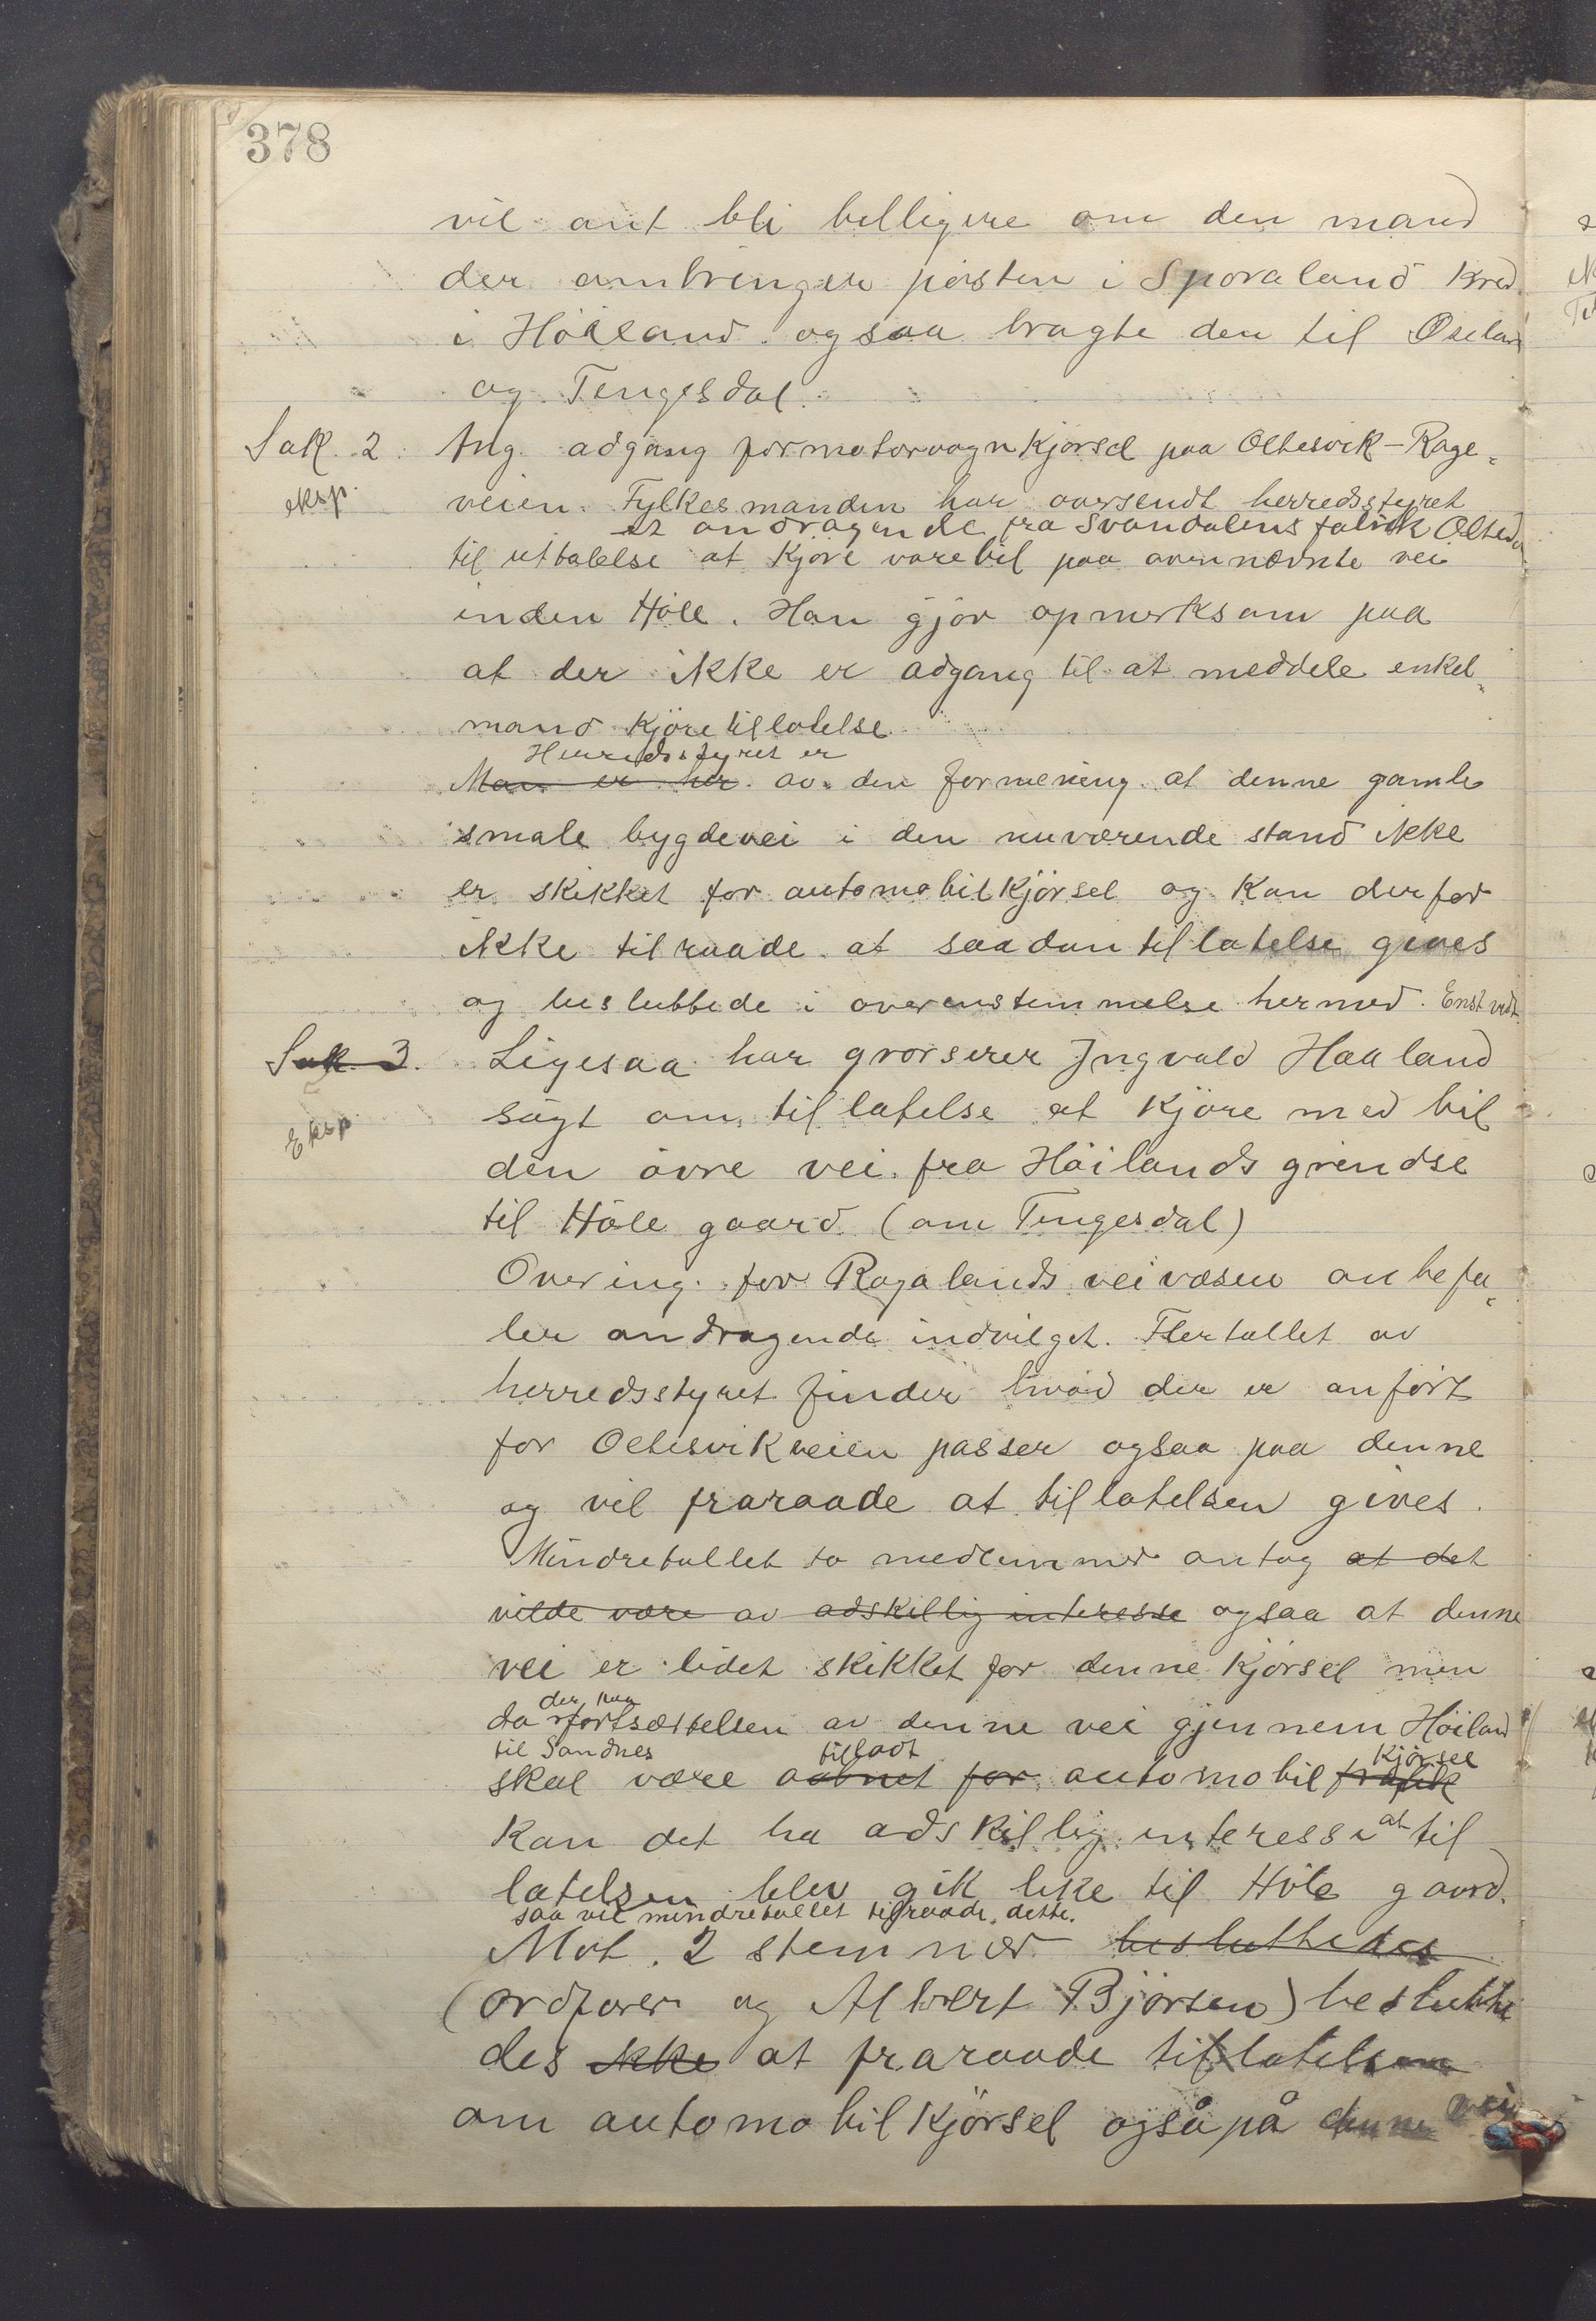 378
vil ant bli billigere om den mand
der ombringer posten i Sporaland Kred.
i Höiland ogsaa bragte den til Oseland
og Tengesdal.
Sak. 2. Ang. adgang for motorvognkjörsel paa Oltesvik-Rage-
eksp. veien. Fylkesmanden har oversendt herredsstyret
et andragende fra Svandalens fabrik Oltedal
til uttalelse at kjöre varebil paa ovennævnte vei
inden Höle. Han gjör opmerksom paa
at der ikke er adgang til at meddele enkel-
mand kjöretillatelse.
Herredsstyret er
Man er her av den formening at denne gamle
smale bygdevei i den nuværende stand ikke
er skikket for automobilkjörsel og kan derfor
ikke tilraade at saadan tillatelse gives
og besluttede i overenstemmelse hermed. Enst. vedt.
Sak 3. Ligesaa har grosserer Ingvald Haaland
Eksp. sögt om tillatelse at kjöre med bil
den övre vei fra Höilands grændse
til Höle gaard (om Tengesdal)
Overing. for Rogalands veivæsen anbefa-
ler andragende indvilget. Flertallet av
herredsstyret finder hvad der er anfört
for Oltesvikveien passer ogsaa paa denne
og vil fraraade at tillatelsen gives.
Mindretallet to medlemmer antog at det
vilde være av adskillig interesse ogsaa at denne
vei er lidet skikket for denne kjörsel men
der paa
da fortsættelsen av denne vei gjennem Höiland
til Sandnes tilladt kjörsel
skal være aabnet for automobil trafik
kan det ha adskillig interesse at til
latelsen blev gik like til Höle gaard.
saa vil mindretallet tilraade dette.
Mot 2 stemmer besluttedes
(ordförer og Albert Bjørsen) beslutte
des ikke at fraraade tillatelsen
om automobilkjörsel også på denne vei